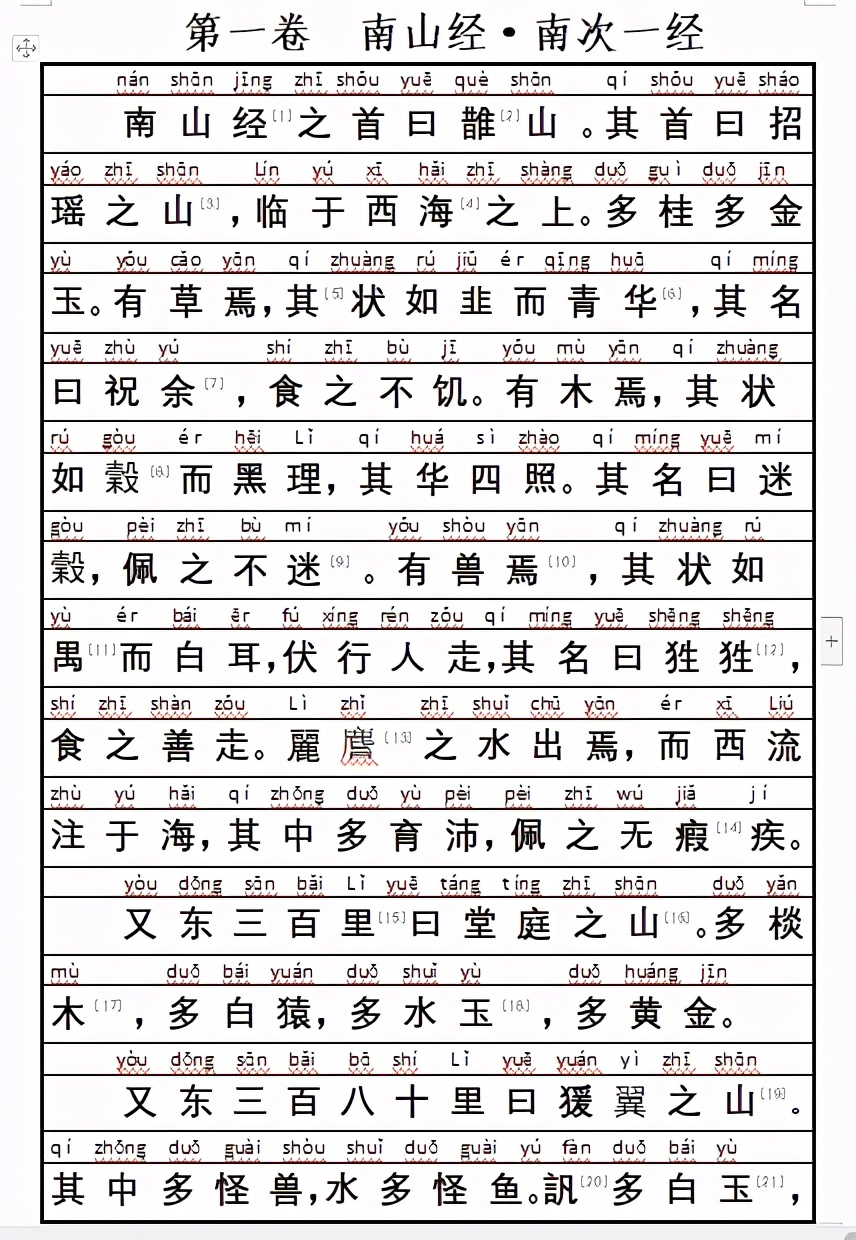 第一卷 南山经·南次一经
nán shān jīng zhī shǒu yuē què shān qí shǒu yuē sháo
南山经[1]之首曰䧿[2]山。其首曰招
yáo zhī shān Lín yú xī hǎi zhī shàng duō guì duō jīn
瑶之山[3],临于西海[4]之上。多桂多金
yù yǒu cǎo yān qí zhuàng rú jiǔ ér qīng huā qí míng
玉。有草焉,其[5]状如韭而青华[6],其名
yuē zhù yú shí zhī bù jī yǒu mù yān qí zhuàng
曰祝余[7],食之不饥。有木焉,其状
rú gòu ér hēi Lǐ qí huá sì zhào qí míng yuē mí
如榖[8]而黑理,其华四照。其名曰迷
gòu pèi zhī bù mí yǒu shòu yān qí zhuàng rú
榖,佩之不迷[9]。有兽焉[10],其状如
yù ér bái ěr fú xíng rén zǒu qí míng yuē shēng shēng
禺[11]而白耳,伏行人走,其名曰狌狌[12],
shí zhī shàn zǒu Lì zhǐ zhī shuǐ chū yān ér xī Liú
食之善走。麗𪊨[13]之水出焉,而西流
zhù yú hǎi qí zhōng duō yù pèi pèi zhī wú jiǎ jí
注于海,其中多育沛,佩之无瘕[14]疾。
yòu dōng sān bǎi Lǐ yuē táng tíng zhī shān duō yǎn
又东三百里[15]曰堂庭之山[16]。多棪
mù duō bái yuán duō shuǐ yù duō huáng jīn
木[17],多白猿,多水玉[18],多黄金。
yòu dōng sān bǎi bā shí Lǐ yuē yuán yì zhī shān
又东三百八十里曰猨翼之山[19]。
qí zhōng duō guài shòu shuǐ duō guài yú fàn duō bái yù
其中多怪兽,水多怪鱼。訊[20]多白玉[21],